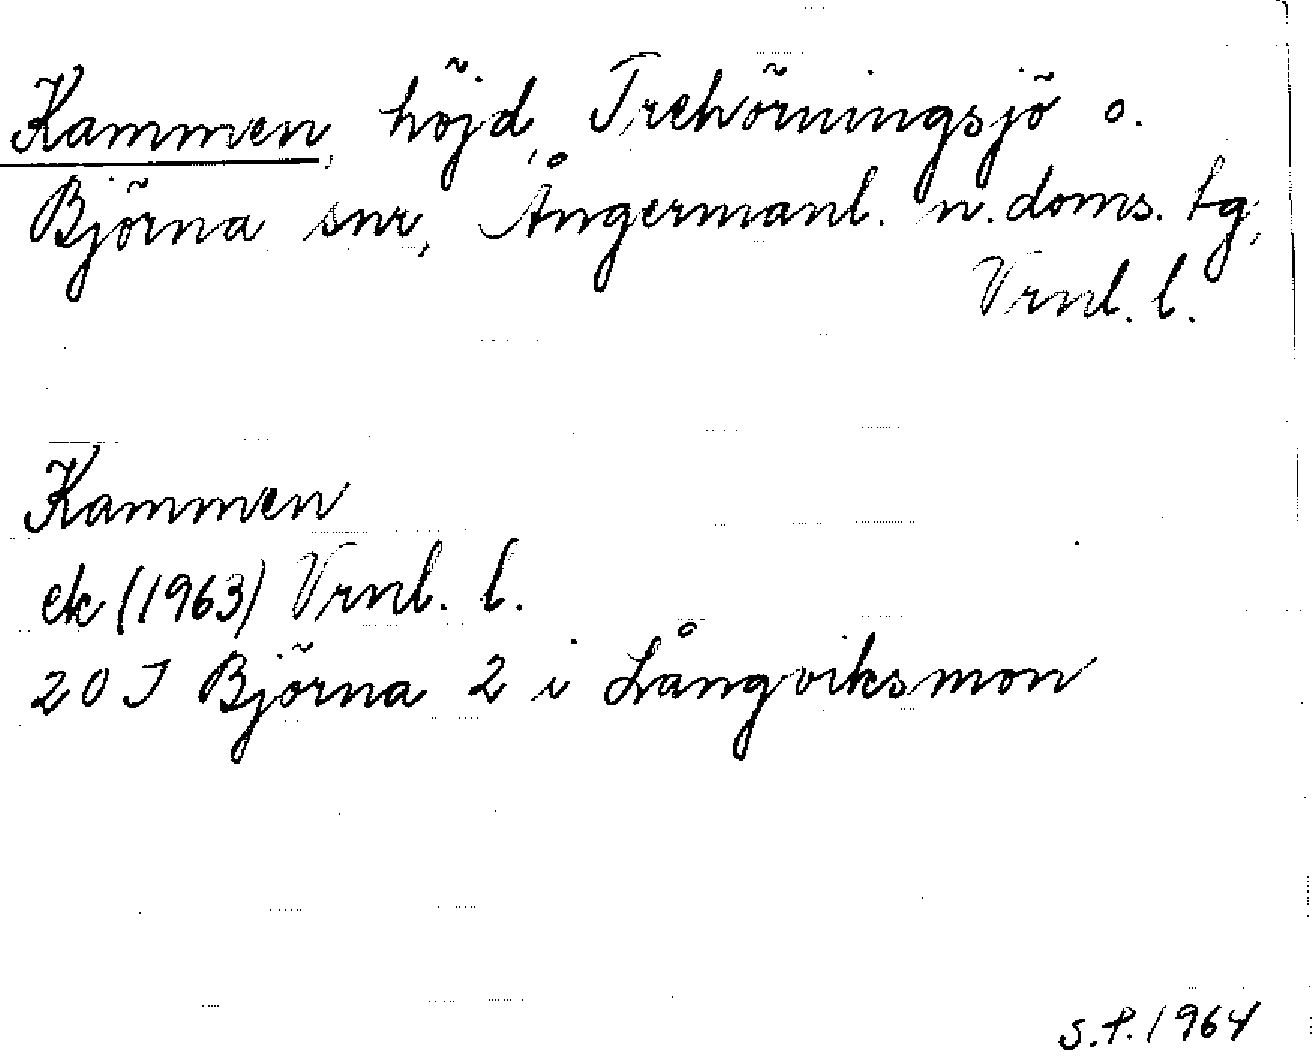 Kammen, höjd, Trehörningsjö o.
Björna snr, Ångermanl. n. doms. tg,
Vrnl. l.
Kammen
ek (1963) Vrnl. l.
20 I Björna 2 i Långviksmon
S.P. 1964